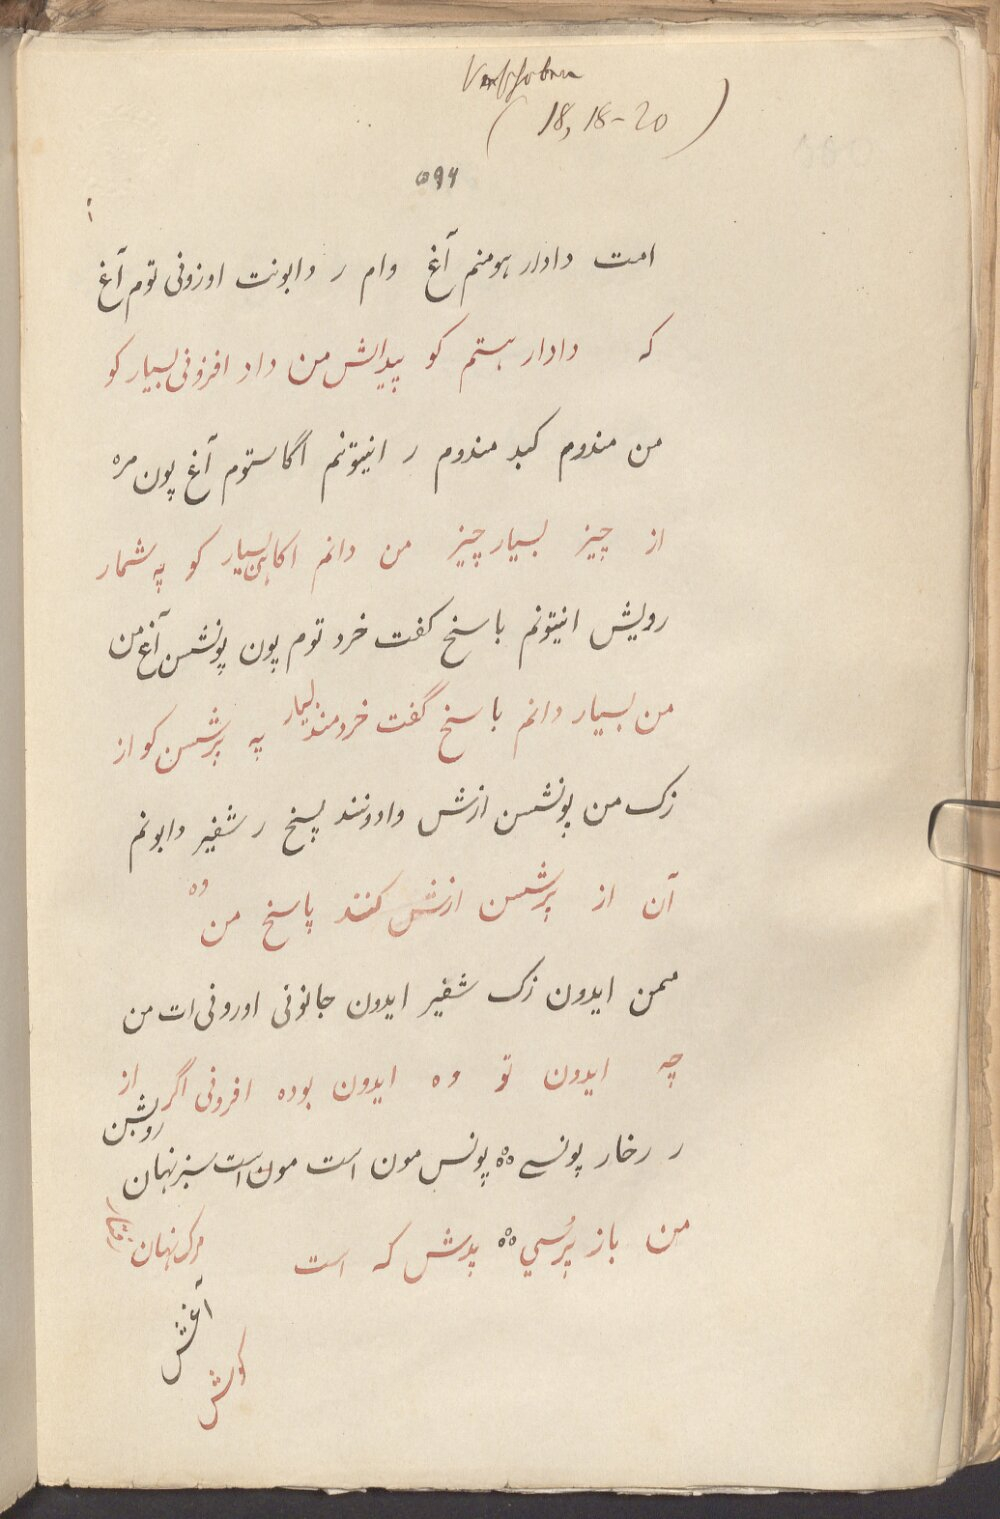 Verschoben
( 18, 18-20 )
۵۹۶
امت دادار هومنم آغ وام ر دابونت اوزونی توم آغ
که دادار هستم کو پیدایش من داد افزونی بسیار کو
من مندوم کبد مندوم ر انیتونم اگاستوم آغ پون مره
از چیز بسیار چیز من دانم اکاهی بسیار کو په شمار
رویش انیتونم باسخ کفت خرد توم پون پونشسن آغ من
من بسیار دانم باسخ گفت خردمند بسیار په پرشسن کو از
زک من پونشسن ازش وادونند پسخ ر شفیر دابونم
آن از پرشسن ازش کنند پاسخ من وه
ممن ایدون زک شفیر ایدون جانونی اورونی ات من
چه ایدون تو وه ایدون بوده افرونی اگر از
ر رخار پونسے پونس مون است مون است سبز نهان
روشن
من باز پرسي پدش که است مرک نهان
آغش
کوش